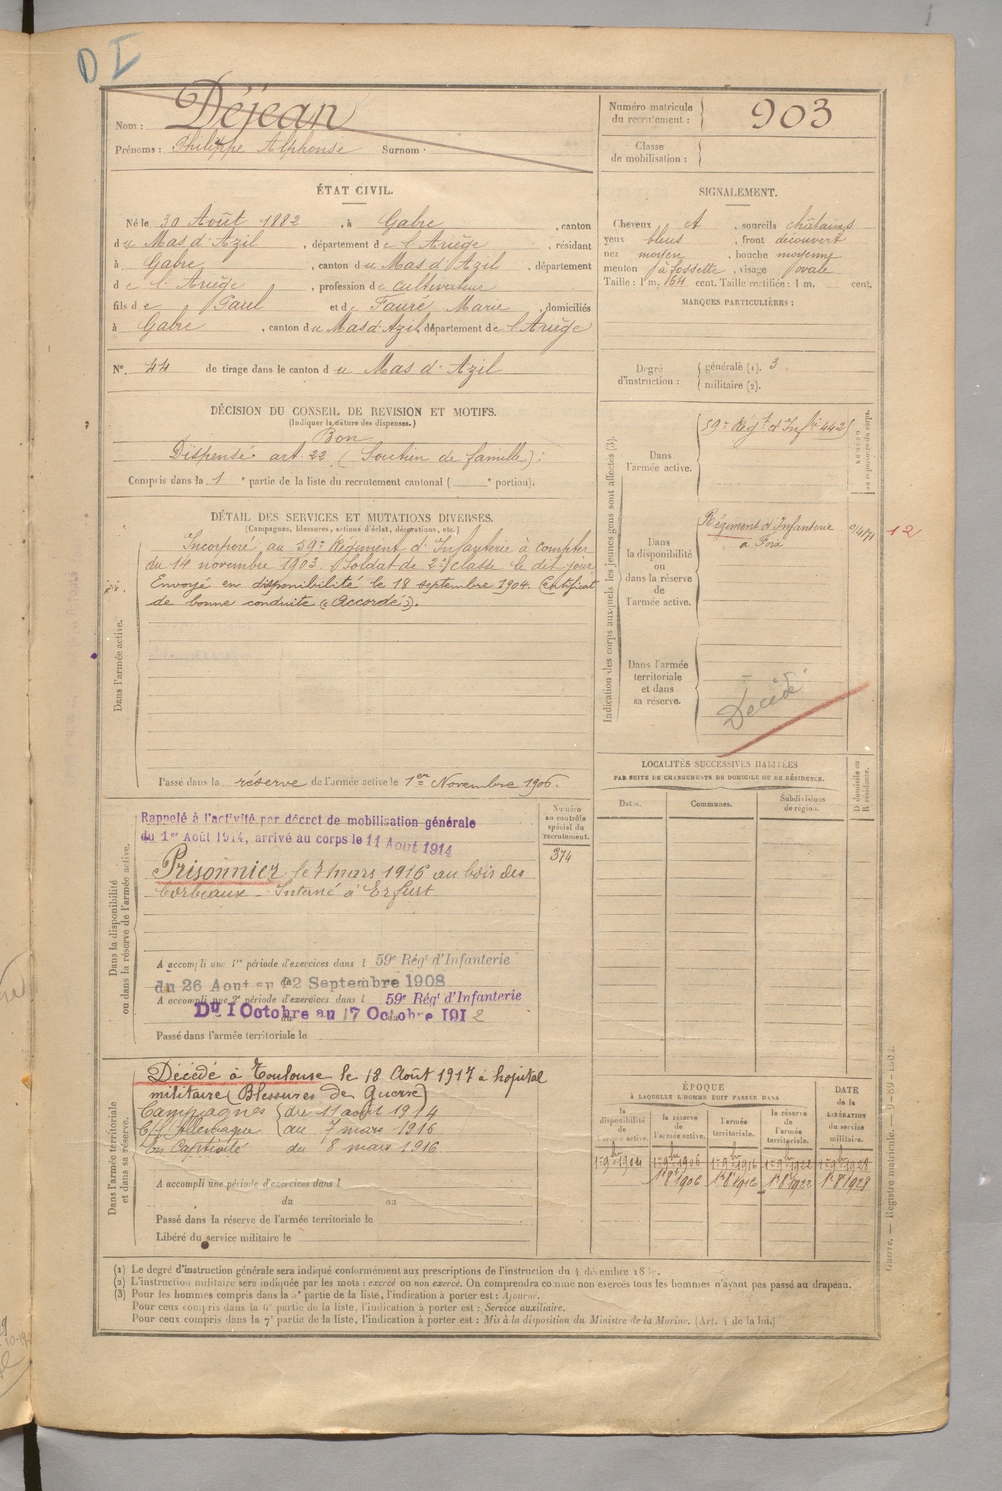 D I
Nom : Déjean
Prénoms : Philippe Alphonse Surnom :
Numéro matricule du recrutement : 903
Classe de mobilisation :
ÉTAT CIVIL.
Né le 30 Août 1882, à Gabre, canton
du Mas d'Azil, département de l'Ariège, résidant
à Gabre, canton du Mas d'Azil, département
de l'Ariège, profession de cultivateur
fils de Paul et de Fauré Marie, domiciliés
à Gabre, canton du Mas d'Azil, département de l'Ariège
N° 44 de tirage dans le canton du Mas d'Azil
SIGNALEMENT.
Cheveux et, sourcils châtains
yeux bleus, front découvert
nez moyen, bouche moyenne
menton à fossette, visage ovale
Taille : 1 m. 64 cent. Taille rectifiée : 1 m. cent.
MARQUES PARTICULIÈRES :
Degré d'instruction : générale (1). 3.
militaire (2).
DÉCISION DU CONSEIL DE REVISION ET MOTIFS.
(Indiquer la nature des dispenses.)
Bon
Dispensé art. 22 (Soutien de famille) :
Compris dans la 1e partie de la liste du recrutement cantonal ( e portion).
DÉTAIL DES SERVICES ET MUTATIONS DIVERSES.
(Campagnes, blessures, actions d'éclat, décorations, etc.)
Dans l'armée active.
Incorporé au 59e Régiment d'Infanterie à compter
du 14 novembre 1903. Soldat de 2e classe le dit jour
Envoyé en disponibilité le 18 septembre 1904. Certificat
de bonne conduite « Accordé ».
Passé dans la réserve de l'armée active le 1er Novembre 1906.
Indication des corps auxquels les jeunes gens sont affectés (3).
Dans l'armée active.
59e Régt d'Infie 4425
Dans la disponibilité ou dans la réserve de l'armée active.
Régiment d'Infanterie
à Foix
12
Dans l'armée territoriale et dans sa réserve.
Décédé
LOCALITÉS SUCCESSIVES HABITÉES
PAR SUITE DE CHANGEMENTS DE DOMICILE OU DE RÉSIDENCE.
Dates. Communes. Subdivisions de région. D domicile ou R résidence.
Dans la disponibilité ou dans la réserve de l'armée active.
Numéro au contrôle spécial du recrutement.
374
Rappelé à l'activité par décret de mobilisation générale
du 1er Août 1914, arrivé au corps le 11 Aout 1914
Prisonnier le 7 mars 1916 au bois des
Corbeaux - Interné à Erfurt
A accompli une 1re période d'exercices dans l 59e Régt d'Infanterie
du 26 Aout au 22 Septembre 1908
A accompli une 2e période d'exercices dans l 59e Régt d'Infanterie
Du 1 Octobre au 17 Octobre 1912
Passé dans l'armée territoriale le
Dans l'armée territoriale et dans sa réserve.
Décédé à Toulouse le 18 Août 1917 à hopital
militaire (Blessures de Guerre)
Campagnes du 11 août 1914
C/ l'Allemagne au 7 mars 1916
En Captivité du 8 mars 1916
A accompli une période d'exercices dans l
du au
Passé dans la réserve de l'armée territoriale le
Libéré du service militaire le
ÉPOQUE
À LAQUELLE L'HOMME DOIT PASSER DANS
la disponibilité de l'armée active.
la réserve de l'armée active.
l'armée territoriale.
la réserve de l'armée territoriale.
DATE de la LIBÉRATION du service militaire.
1er 9bre 1904 1er 9bre 1906 1er 9bre 1916 1er 9bre 1922 1er 9bre 1928
1er 8bre 1906 1er 8bre 1916 1er 8bre 1922 1er 8bre 1928
(1) Le degré d'instruction générale sera indiqué conformément aux prescriptions de l'instruction du 4 décembre
(2) L'instruction militaire sera indiquée par les mots : exercé ou non exercé. On comprendra comme non exercés tous les hommes n'ayant pas passé au drapeau.
(3) Pour les hommes compris dans la 2e partie de la liste, l'indication à porter est : Ajourné.
Pour ceux compris dans la 6e partie de la liste, l'indication à porter est : Service auxiliaire.
Pour ceux compris dans la 7e partie de la liste, l'indication à porter est : Mis à la disposition du Ministre de la Marine. (Art. 4 de la loi.)
Guerre. — Registre matricule.